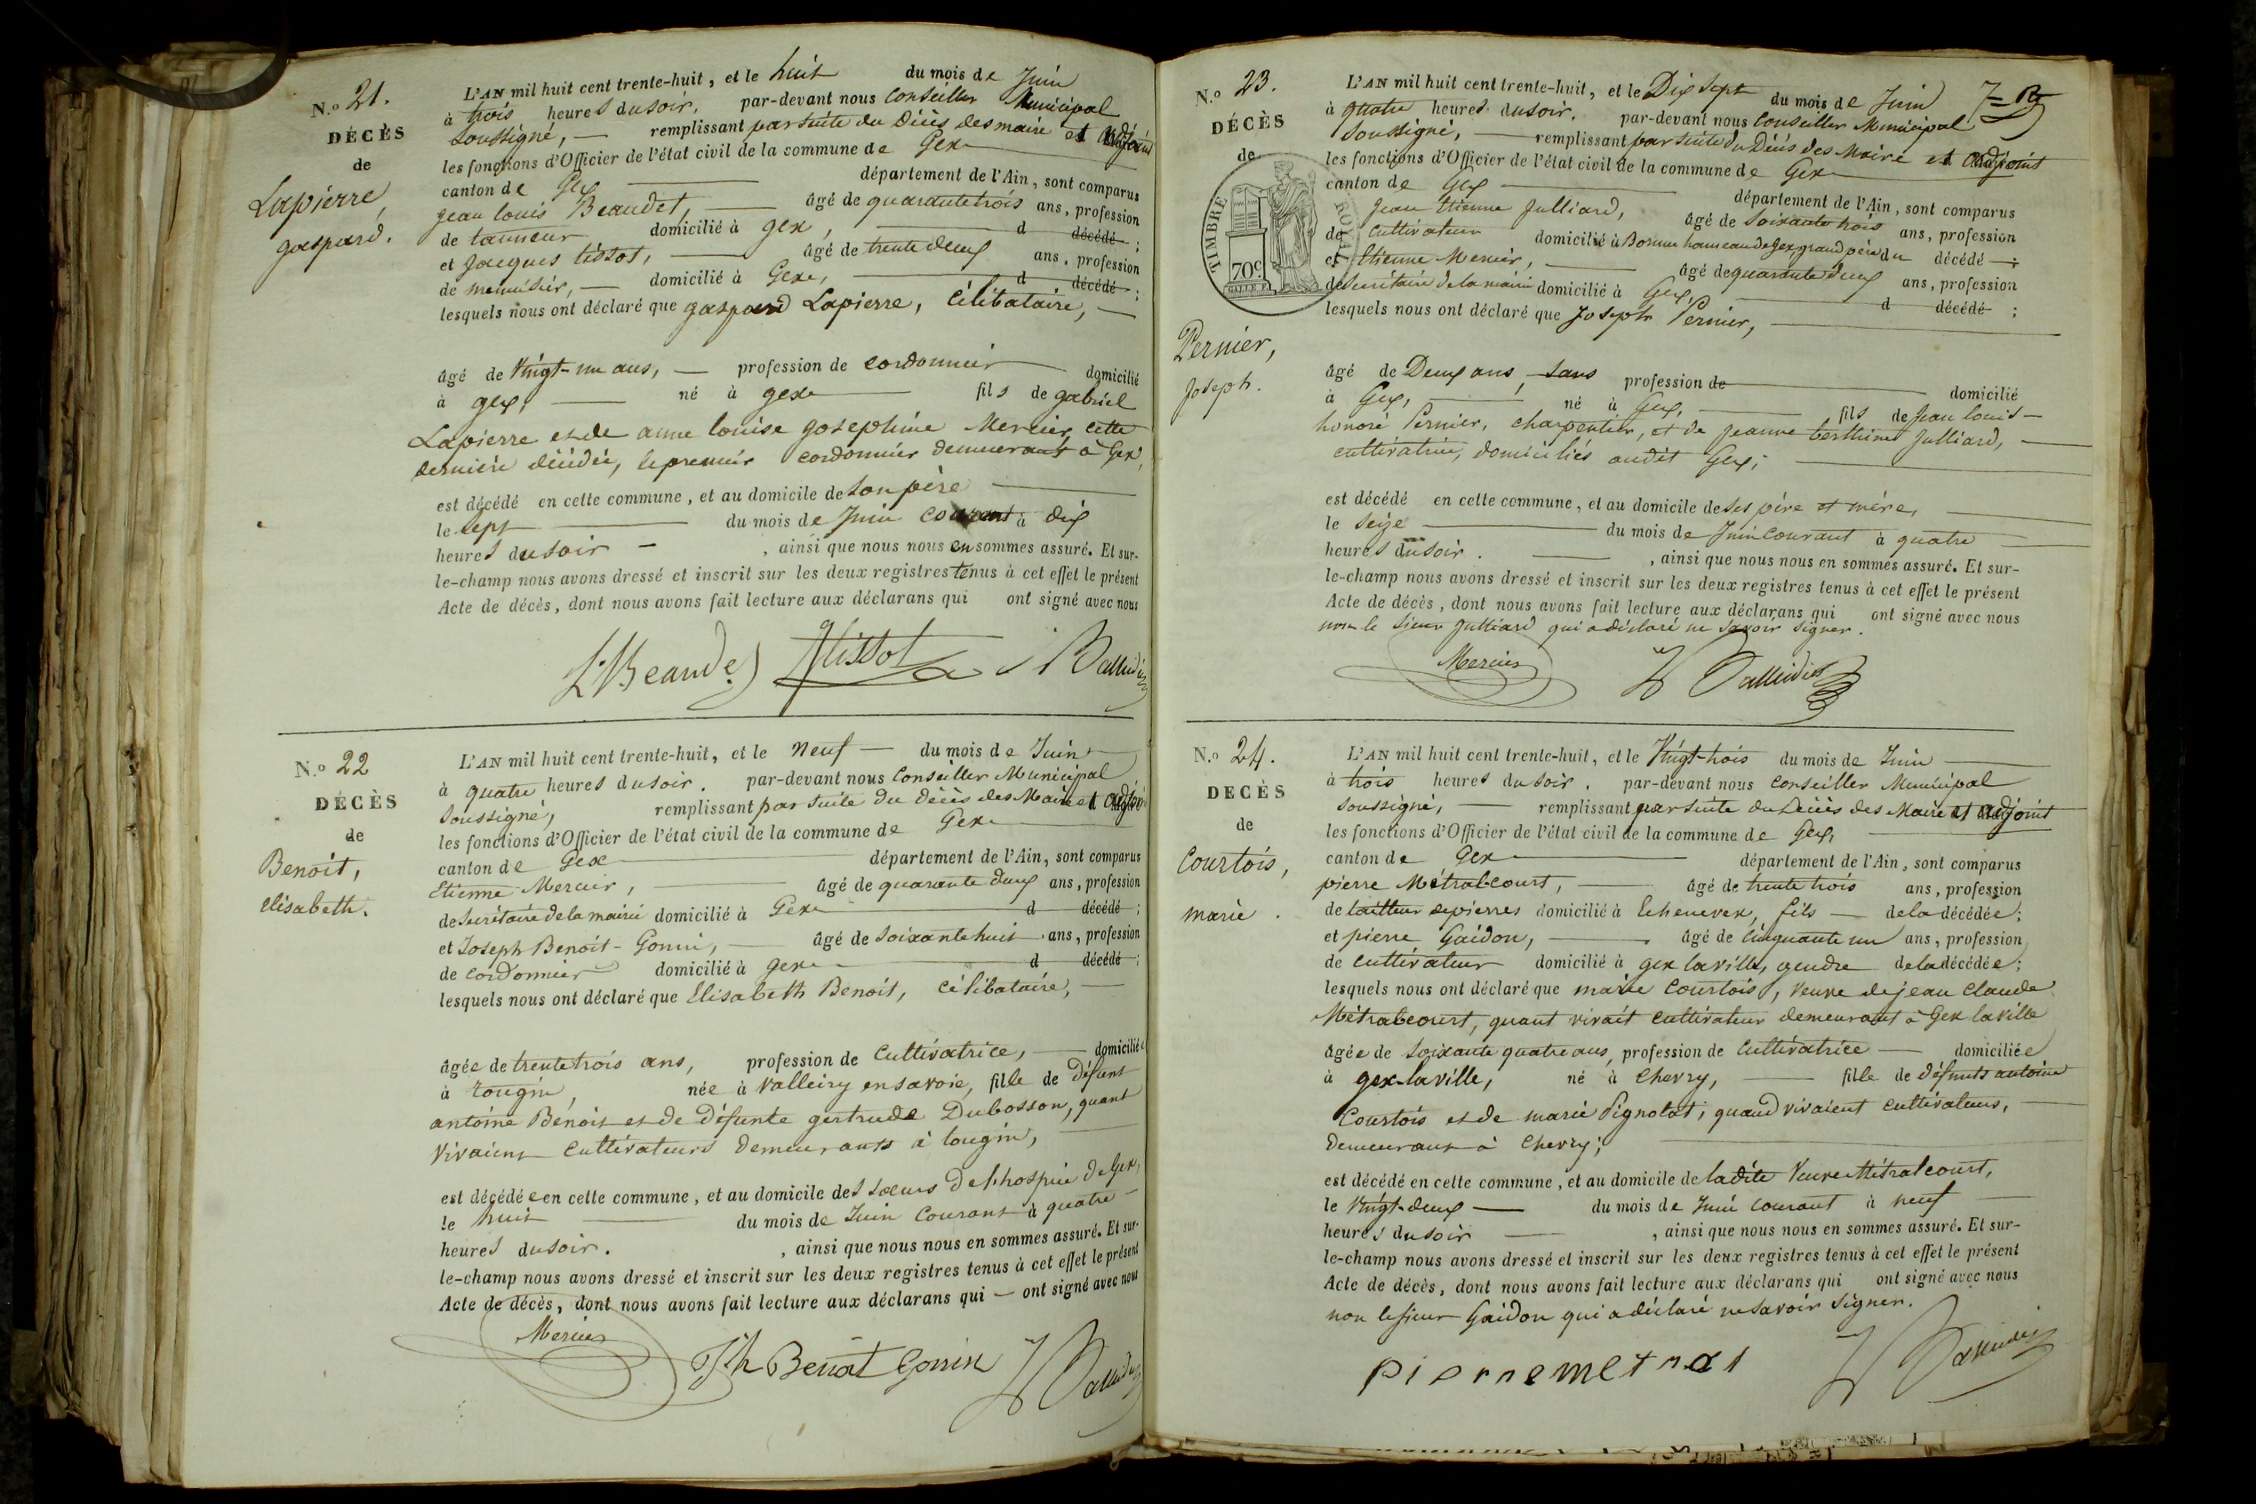 N.º 21.
DÉCÈS
de
Lapierre,
gaspard.
L'AN mil huit cent trente-huit, et le huit du mois de Juin
à trois heures du soir, par-devant nous Conseiller Municipal
soussigné, — remplissant par suite du Décès des maire et adjoint
les fonctions d'Officier de l'état civil de la commune de Gex
canton de Gex — département de l'Ain, sont comparus
jean louis Beaudet, — âgé de quarante trois ans, profession
de tanneur domicilié à gex, — d décédé ;
et jacques tissot, — âgé de trente deux ans, profession
de menuisier, — domicilié à Gex, — d décédé ;
lesquels nous ont déclaré que gaspard Lapierre, Célibataire, —
âgé de vingt-un ans, — profession de cordonnier domicilié
à gex, — né à gex fils de gabriel
Lapierre et de anne louise josephine Mercier, cette
dernière décédée, le premier cordonnier demeurant à Gex,
est décédé en cette commune, et au domicile de son père —
le sept — du mois de Juin courant à dix
heures du soir — , ainsi que nous nous en sommes assuré. Et sur-
le-champ nous avons dressé et inscrit sur les deux registres tenus à cet effet le présent
Acte de décès, dont nous avons fait lecture aux déclarans qui ont signé avec nous
L. Beaudet J tissot
N.º 22
DÉCÈS
de
Benoit,
elisabeth.
L'AN mil huit cent trente-huit, et le neuf — du mois de Juin
à quatre heures du soir. par-devant nous Conseiller Municipal
soussigné, remplissant par suite du décès des Maire et adjoint
les fonctions d'Officier de l'état civil de la commune de Gex
canton de Gex — département de l'Ain, sont comparus
Etienne Mercier, — âgé de quarante deux ans, profession
de secrétaire de la mairie domicilié à Gex — d décédé ;
et Joseph Benoit-Gonin, — âgé de soixante huit ans, profession
de cordonnier domicilié à gex — d décédé ;
lesquels nous ont déclaré que Elisabeth Benoit, célibataire, —
âgée de trente trois ans, profession de Cultivatrice, — domiciliée
à tougin, née à valleiry en savoie, fille de défunt
antoine Benoit et de défunte gertrude Dubosson, quant
vivaient cultivateurs demeurants à tougin, —
est décédée en cette commune, et au domicile des soeurs de l'hospice de Gex,
le huit — du mois de Juin courant à quatre —
heures du soir. , ainsi que nous nous en sommes assuré. Et sur-
le-champ nous avons dressé et inscrit sur les deux registres tenus à cet effet le présent
Acte de décès, dont nous avons fait lecture aux déclarans qui — ont signé avec nous
Mercier Jph Benoit Gonin
N.º 23.
DÉCÈS
de
TIMBRE ROYAL
70c
Pernier,
joseph.
L'AN mil huit cent trente-huit, et le Dix sept du mois de Juin
à quatre heures du soir. par-devant nous Conseiller Municipal
soussigné, — remplissant par suite du Décès des Maire et adjoint
les fonctions d'Officier de l'état civil de la commune de Gex
canton de Gex — département de l'Ain, sont comparus
Jean Etienne Julliard, âgé de soixante trois ans, profession
de cultivateur domicilié à hameau de Gex, grand père du décédé ;
et Etienne Mercier, — âgé de quarante deux ans, profession
de secrétaire de la mairie domicilié à Gex, — d décédé ;
lesquels nous ont déclaré que joseph Pernier, —
âgé de Deux ans, sans profession de — domicilié
à Gex, — né à Gex, — fils de jean louis
honoré Pernier, charpentier, et de jeanne berthine Julliard, —
cultivatrice, domiciliés audit Gex; —
est décédé en cette commune, et au domicile de ses père et mère, —
le seize — du mois de Juin courant à quatre —
heures du soir. — , ainsi que nous nous en sommes assuré. Et sur-
le-champ nous avons dressé et inscrit sur les deux registres tenus à cet effet le présent
Acte de décès, dont nous avons fait lecture aux déclarans qui ont signé avec nous
non le sieur Julliard qui a déclaré ne savoir signer.
Mercier
N.º 24.
DÉCÈS
de
Courtois,
marie.
L'AN mil huit cent trente-huit, et le Vingt-trois du mois de Juin —
à trois heures du soir. par-devant nous conseiller Municipal
soussigné, — remplissant par suite du Décès des Maire et adjoint
les fonctions d'Officier de l'état civil de la commune de Gex,
canton de Gex — département de l'Ain, sont comparus
pierre Métralcourt, — âgé de trente trois ans, profession
de tailleur de pierres domicilié à Echenevex, fils — de la décédée ;
et pierre Gaidon, — âgé de Cinquante un ans, profession
de cultivateur domicilié à gex la ville, gendre de la décédée ;
lesquels nous ont déclaré que marie Courtois, veuve de jean claude
Métralcourt, quant vivait cultivateur demeurant à Gex la ville
âgée de soixante quatre ans, profession de Cultivatrice — domiciliée
à gex-la ville, né à Chevry, — fille de défunts antoine
Courtois et de marie Pignolat, quand vivaient cultivateurs, —
demeurant à Chevry; —
est décédé en cette commune, et au domicile de ladite Veuve Métralcourt,
le Vingt-deux — du mois de Juin courant à neuf —
heures du soir — , ainsi que nous nous en sommes assuré. Et sur-
le-champ nous avons dressé et inscrit sur les deux registres tenus à cet effet le présent
Acte de décès, dont nous avons fait lecture aux déclarans qui ont signé avec nous
non le sieur Gaidon qui a déclaré ne savoir signer.
pierremetral